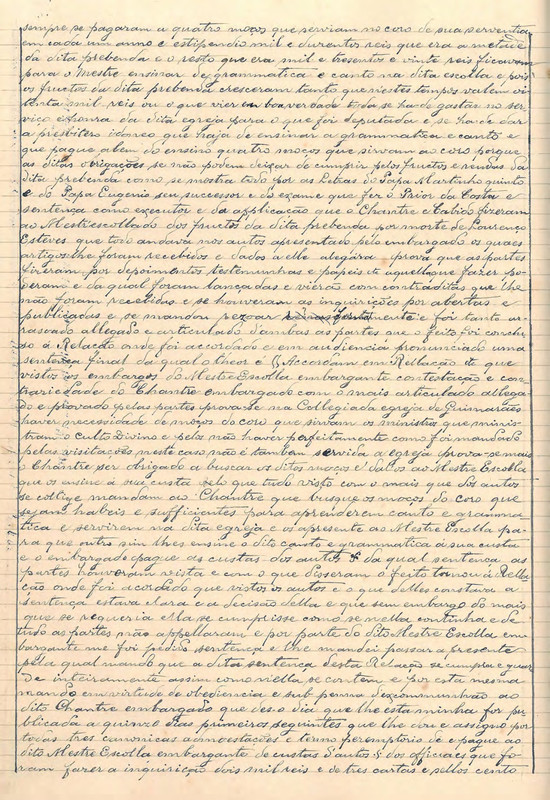 sempre se pagaram a quatro moços que serviam no coro de sua serventia
em cada um anno e estipendio mil e duzentos reis que era a metade
da dita prebenda e o resto que era mil e tresentos e vinte reis ficavam
para o Mestre ensinar de grammatica e canto na dita escolla e pois
os fructos da dita prebenda cresceram tanto que n'estes tempos valem oi-
tenta mil reis ou o que vier em boa verdade tudo se ha de gastar no ser-
viço e honra da dita egreja para o que foi deputada e se ha de dar
a presbitero idoneo que haja de ensinar a grammatica e canto e
que pague alem do ensino quatro moços que sirvam ao coro porque
as ditas obrigações se não podem deixar de cumprir pelos fructos e rendas da
dita prebenda como se mostra tudo por as Letras do Papa Martinho quinto
e do Papa Eugenio seu successor e do exame que fez o Prior da Costa e
sentença como executor e da applicação que o Chantre e Cabido fizeram
ao Mestrescollado dos fructos da dita prebenda por morte de Lourenço
Esteves que tudo andava nos autos apresentado pelo embargado os quaes
artigos lhe foram recebidos e dados a elle alegára prova que as partes
fizeram por depoimentos testemunhas e papeis d'aquella que fazer po-
deram e da qual foram lançadas e vieram com contraditas que lhe
não foram recebidas e se houveram as inquirições por abertas e
publicadas e se mandou rezoar e foi tanto ar-
rasoado allegado e articulado d'ambas as partes que o feito foi conclu-
so á Relação onde foi accordado e em audiencia pronunciado uma
sentença final da qual o theor é § Accordam em Rellação &c que
vistos os embargos do Mestre Escolla embargante contestação e con-
trariedade do Chantre embargado com o mais articulado allega-
do e provado pelas partes prova-se na Collegiada egreja de Guimarães
haver necessidade de moços do coro que sirvam os ministros que minis-
tram o culto Divino e pelos não haver perfeitamente como foi mandado
pelas visitações neste caso não é tambem servida a Egreja prova-se mais
o Chantre ser obrigado a buscar os ditos moços e dal-os ao Mestre Escolla
que os ensine á sua custa pelo que tudo visto com o mais que dos autos
se collige mandam ao Chantre que busque os moços do coro que
sejam habeis e sufficientes para aprenderem canto e gramma-
tica e servirem na dita egreja e os apresente ao Mestre Escolla pa-
ra que outro sim lhes ensine o dito canto e grammatica á sua custa
e o embargado pague as custas dos autos § da qual sentença as
partes houveram vista e com o que disseram o feito tornou á Rella-
ção onde foi acordado que vistos os autos e o que d'elles constava a
sentença estava clara e a decisão della e que sem embargo do mais
que se requeria ella se cumprisse como se nella continha e de
tudo as partes não appellaram e por parte do dito Mestre Escolla em-
bargante me foi pedido sentença e lhe mandei passar a presente
pela qual mando que a dita sentença desta Relação se cumpra e guar-
de inteiramente assim como nella se contem e por esta mesma
mando em virtude de obediencia e sub penna d'excommunhão ao
dito Chantre embargado que des o dia que lhe esta minha for pu-
blicada a quinze dias primeiros seguintes que lhe dou e assigno por
todas tres canonicas admoestações e termo peremptorio dê e pague ao
dito Mestre Escolla embargante de custas d'autos § dos officiaes que fo-
ram fazer a inquirição dois mil reis e de tres cartas e sellos cento